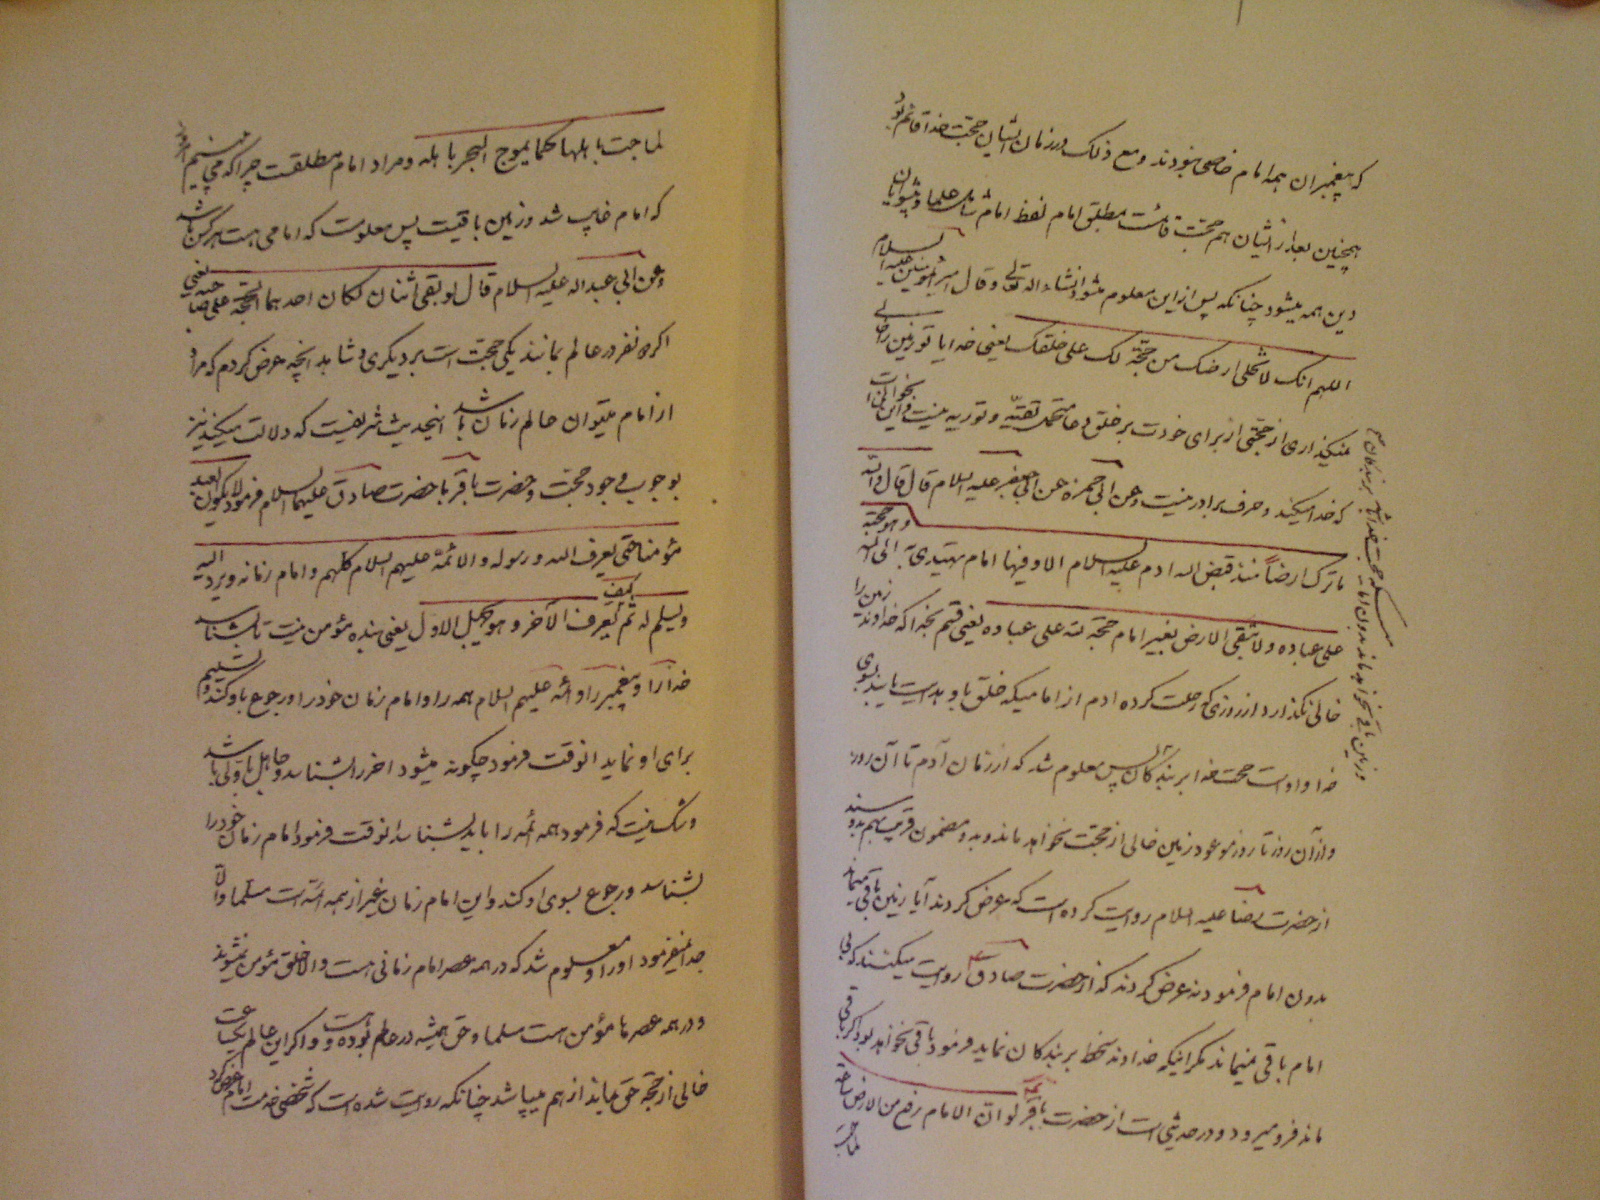 که پیغمبران همه امام خاصی نبودند و مع ذلک در زمان ایشان حجت خدا قائم بود
همچنین بعد از ایشان هم حجت قائمست مطلق امام لفظ امام شامل علما و پیشوایان
دین همه میشود چنانکه پس از این معلوم میشود انشاء الله تعالی و قال امیرالمؤمنین علیه السلام
اللهم انک لا تخلی ارضک من حجة لک علی خلقک یعنی خدایا تو زمین را خالی
نمیگذاری از حجتی از برای خودت بر خلق و جا متحمل تقیه و توریه نیست
که خدا میکنید و حرف برادر نیست و عن ابی حمزه عن ابی جعفر علیه السلام قال قال والله
ما ترک ارضاً منذ قبض الله ادم علیه السلام الا و فیها امام یهتدی به الی الله و هو حجته
علی عباده و لا تبقی الارض بغیر امام حجة لله علی عباده یعنی قسم بخدا که خداوند زمین را
خالی نگذارد از روزی که رحلت کرده ادم از امامیکه خلق باو هدایت یابند بسوی
خدا و اوست حجت خدا بر بندگانش پس معلوم شد که از زمان آدم تا آن روز
و از آن روز تا روز موعود زمین خالی از حجت نخواهد ماند و بدو مضمون قریب بهم
از حضرت رضا علیه السلام روایت کرده است که عرض کردند آیا زمین باقی میماند
بدون امام فرمود نه عرض کردند که از حضرت صادق روایت میکنند که بی
امام باقی نمیماند مگر اینکه خداوند سخط بر بندگان نماید فرمود باقی نخواهد بود اگر باقی
ماند فرو میرود و در حدیثی است از حضرت باقر لو ان الامام رفع من الارض ساعة
لماجت
و زمین باقی نخواهد ماند بدون امامی
لماجت باهلها کما یموج البحر باهله و مراد امام مطلقست چرا که می بینیم
که امام غایب شد و زمین باقیست پس معلومست که امامی هست هر کس باشد
و عن ابی عبد الله علیه السلام قال لو بقی اثنان لکان احدهما الحجة علی صاحبه یعنی
اگر دو نفر در عالم بمانند یکی حجت است بر دیگری و شاهد انچه عرض کردم که مراد
از امام میتوان عالم زمان باشد اینحدیث شریفست که دلالت میکند نیز
بوجوب وجود حجت و حضرت باقر یا حضرت صادق علیهما السلام فرمود لا یکون العبد
مؤمنا حتی یعرف الله و رسوله و الائمة علیهم السلام کلهم و امام زمانه و یرد الیه
و یسلم له ثم کیف یعرف الآخر و هو یجهل الاول یعنی بنده مؤمن نیست تا بشناسد
خدا را و پیغمبر را و ائمه علیهم السلام همه را و امام زمان خود را و رجوع باو کند و تسلیم
برای او نماید انوقت فرمود چگونه میشود اخر را بشناسد و جاهل باولی باشد
و شک نیست که فرمود همه ائمه را باید بشناسد انوقت فرمود امام زمان خود را
بشناسد و رجوع بسوی او کند و این امام زمان غیر از همه ائمه است مسلما و الا
جدا نمیفرمود او را و معلوم شد که در همه عصر امام زمانی هست و الا خلق مؤمن نمیشوند
و در همه عصرها مؤمن هست مسلما و حق همیشه در عالم بوده و هست و اگر این عالم یکساعت
خالی از حجة حق بماند از هم میپاشد چنانکه روایت شده است که شخصی خدمت امام عرض کرد